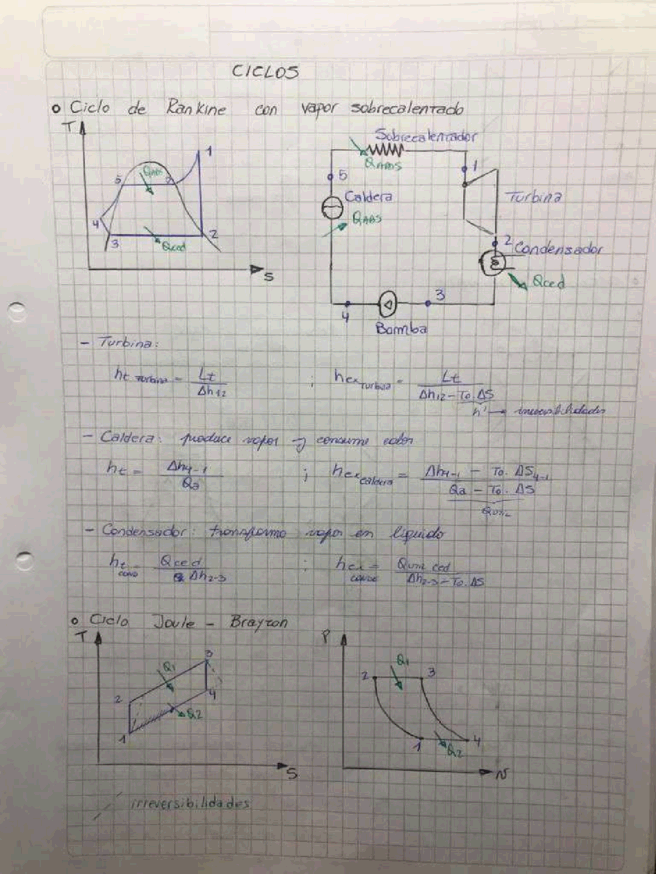 CICLOS
o Ciclo de Rankine con vapor sobrecalentado
T
1
5
QABS
4
3
2
Qced
S
Sobrecalentador
QABS
5
1
Caldera
QABS
Turbina
2 Condensador
Qced
4
3
Bomba
- Turbina:
ht Turbina = Lt / Δh12 ; hex Turbina = Lt / Δh12 - To. ΔS
h' → irreversibilidades
- Caldera: produce vapor y consume calor
ht = Δh4-1 / Qa ; hex caldera = Δh4-1 - To. ΔS4-1 / Qa - To. ΔS
Qutil
- Condensador: transforma vapor en líquido
ht cond = Qced / Δh2-3 ; hex cond = Qutil ced / Δh2-3 - To. ΔS
o Ciclo Joule - Brayton
T
3
Q1
2
4
Q2
1
S
P
2
Q1
3
1
Q2
4
N
irreversibilidades